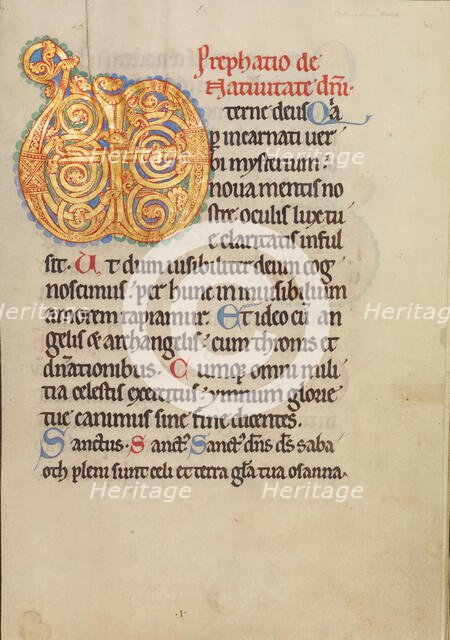 Prephatio de
Natiuitate dm̄i·
terne deus Qa
p incarnati uer
bi mysterium·
noua mentis no
stre oculis lux tu
e claritatis inful
sit. Ut dum uisibiliter deum cog
noscimus· per hunc inuisibilium
amorem rapiamur. Et ideo cū an
gelis & archangelis· cum thronis et
dn̄ationibus. Cumque omni mili
tia celestis exercitus· ymnum glorie
tue canimus sine fine dicentes.
Sanctus· Sanct᷒ Sanct᷒ dn̄s ds̄ saba
oth pleni sunt celi et terra gl̄a tua osanna·
Heritage
Heritage
Heritage
Heritage
Heritage
Heritage
Heritage
Heritage